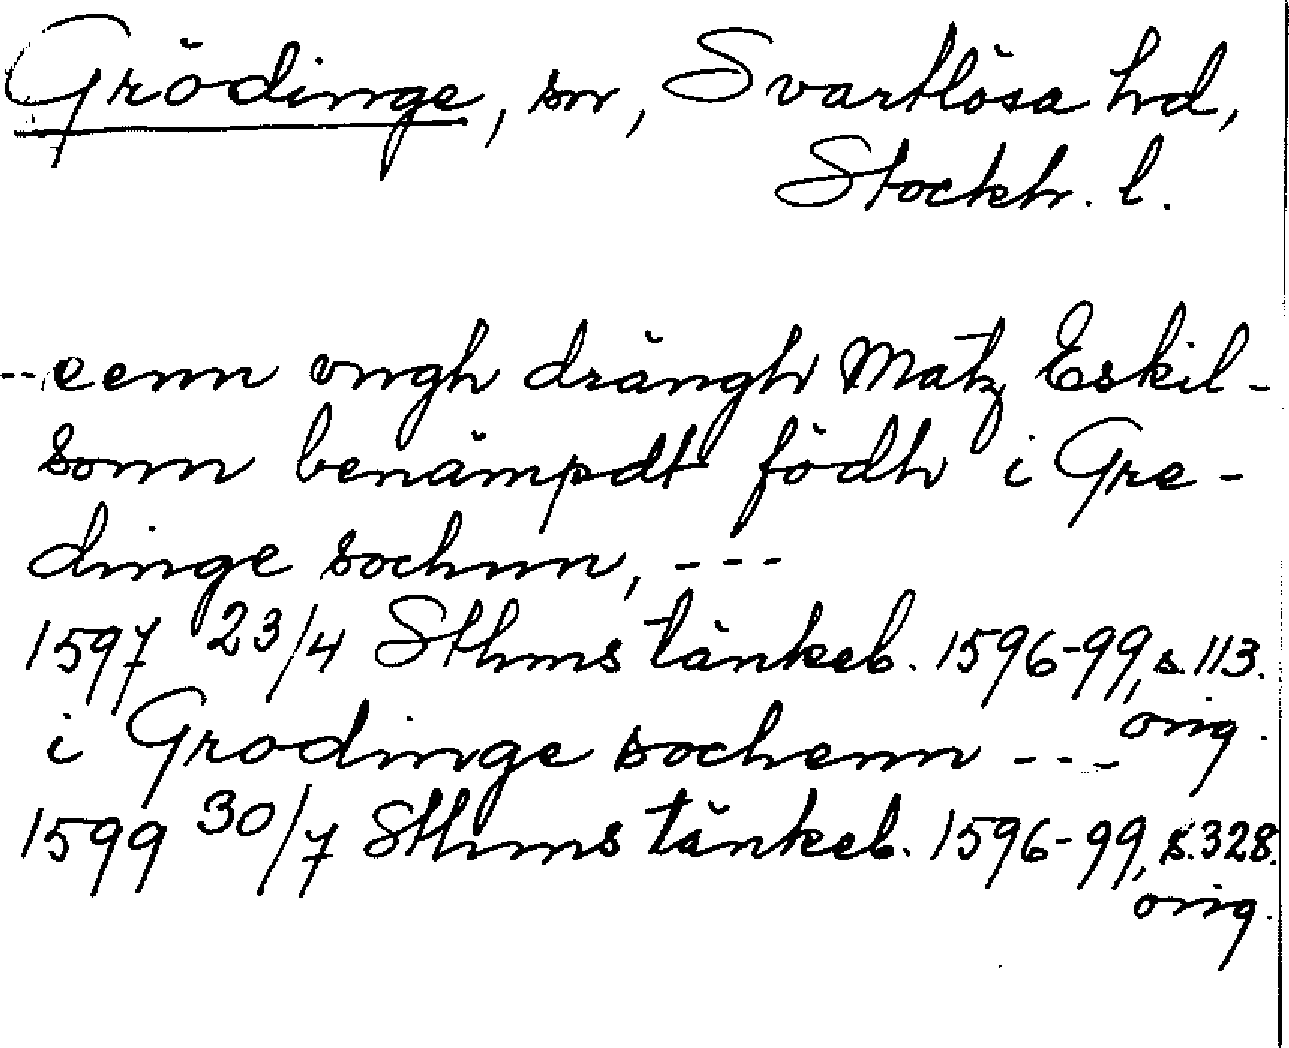 Grödinge, sn, Svartlösa hd,
Stockh. l.
--eenn ongh drängh Matz Eskil-
sonn benämpdt födh i Gre-
dinge sochnn, ---
1597 23/4 Sthms tänkeb. 1596-99, s. 113.
orig.
i Grodinge sochenn ---
1599 30/7 Sthms tänkeb. 1596-99, s. 328.
orig.